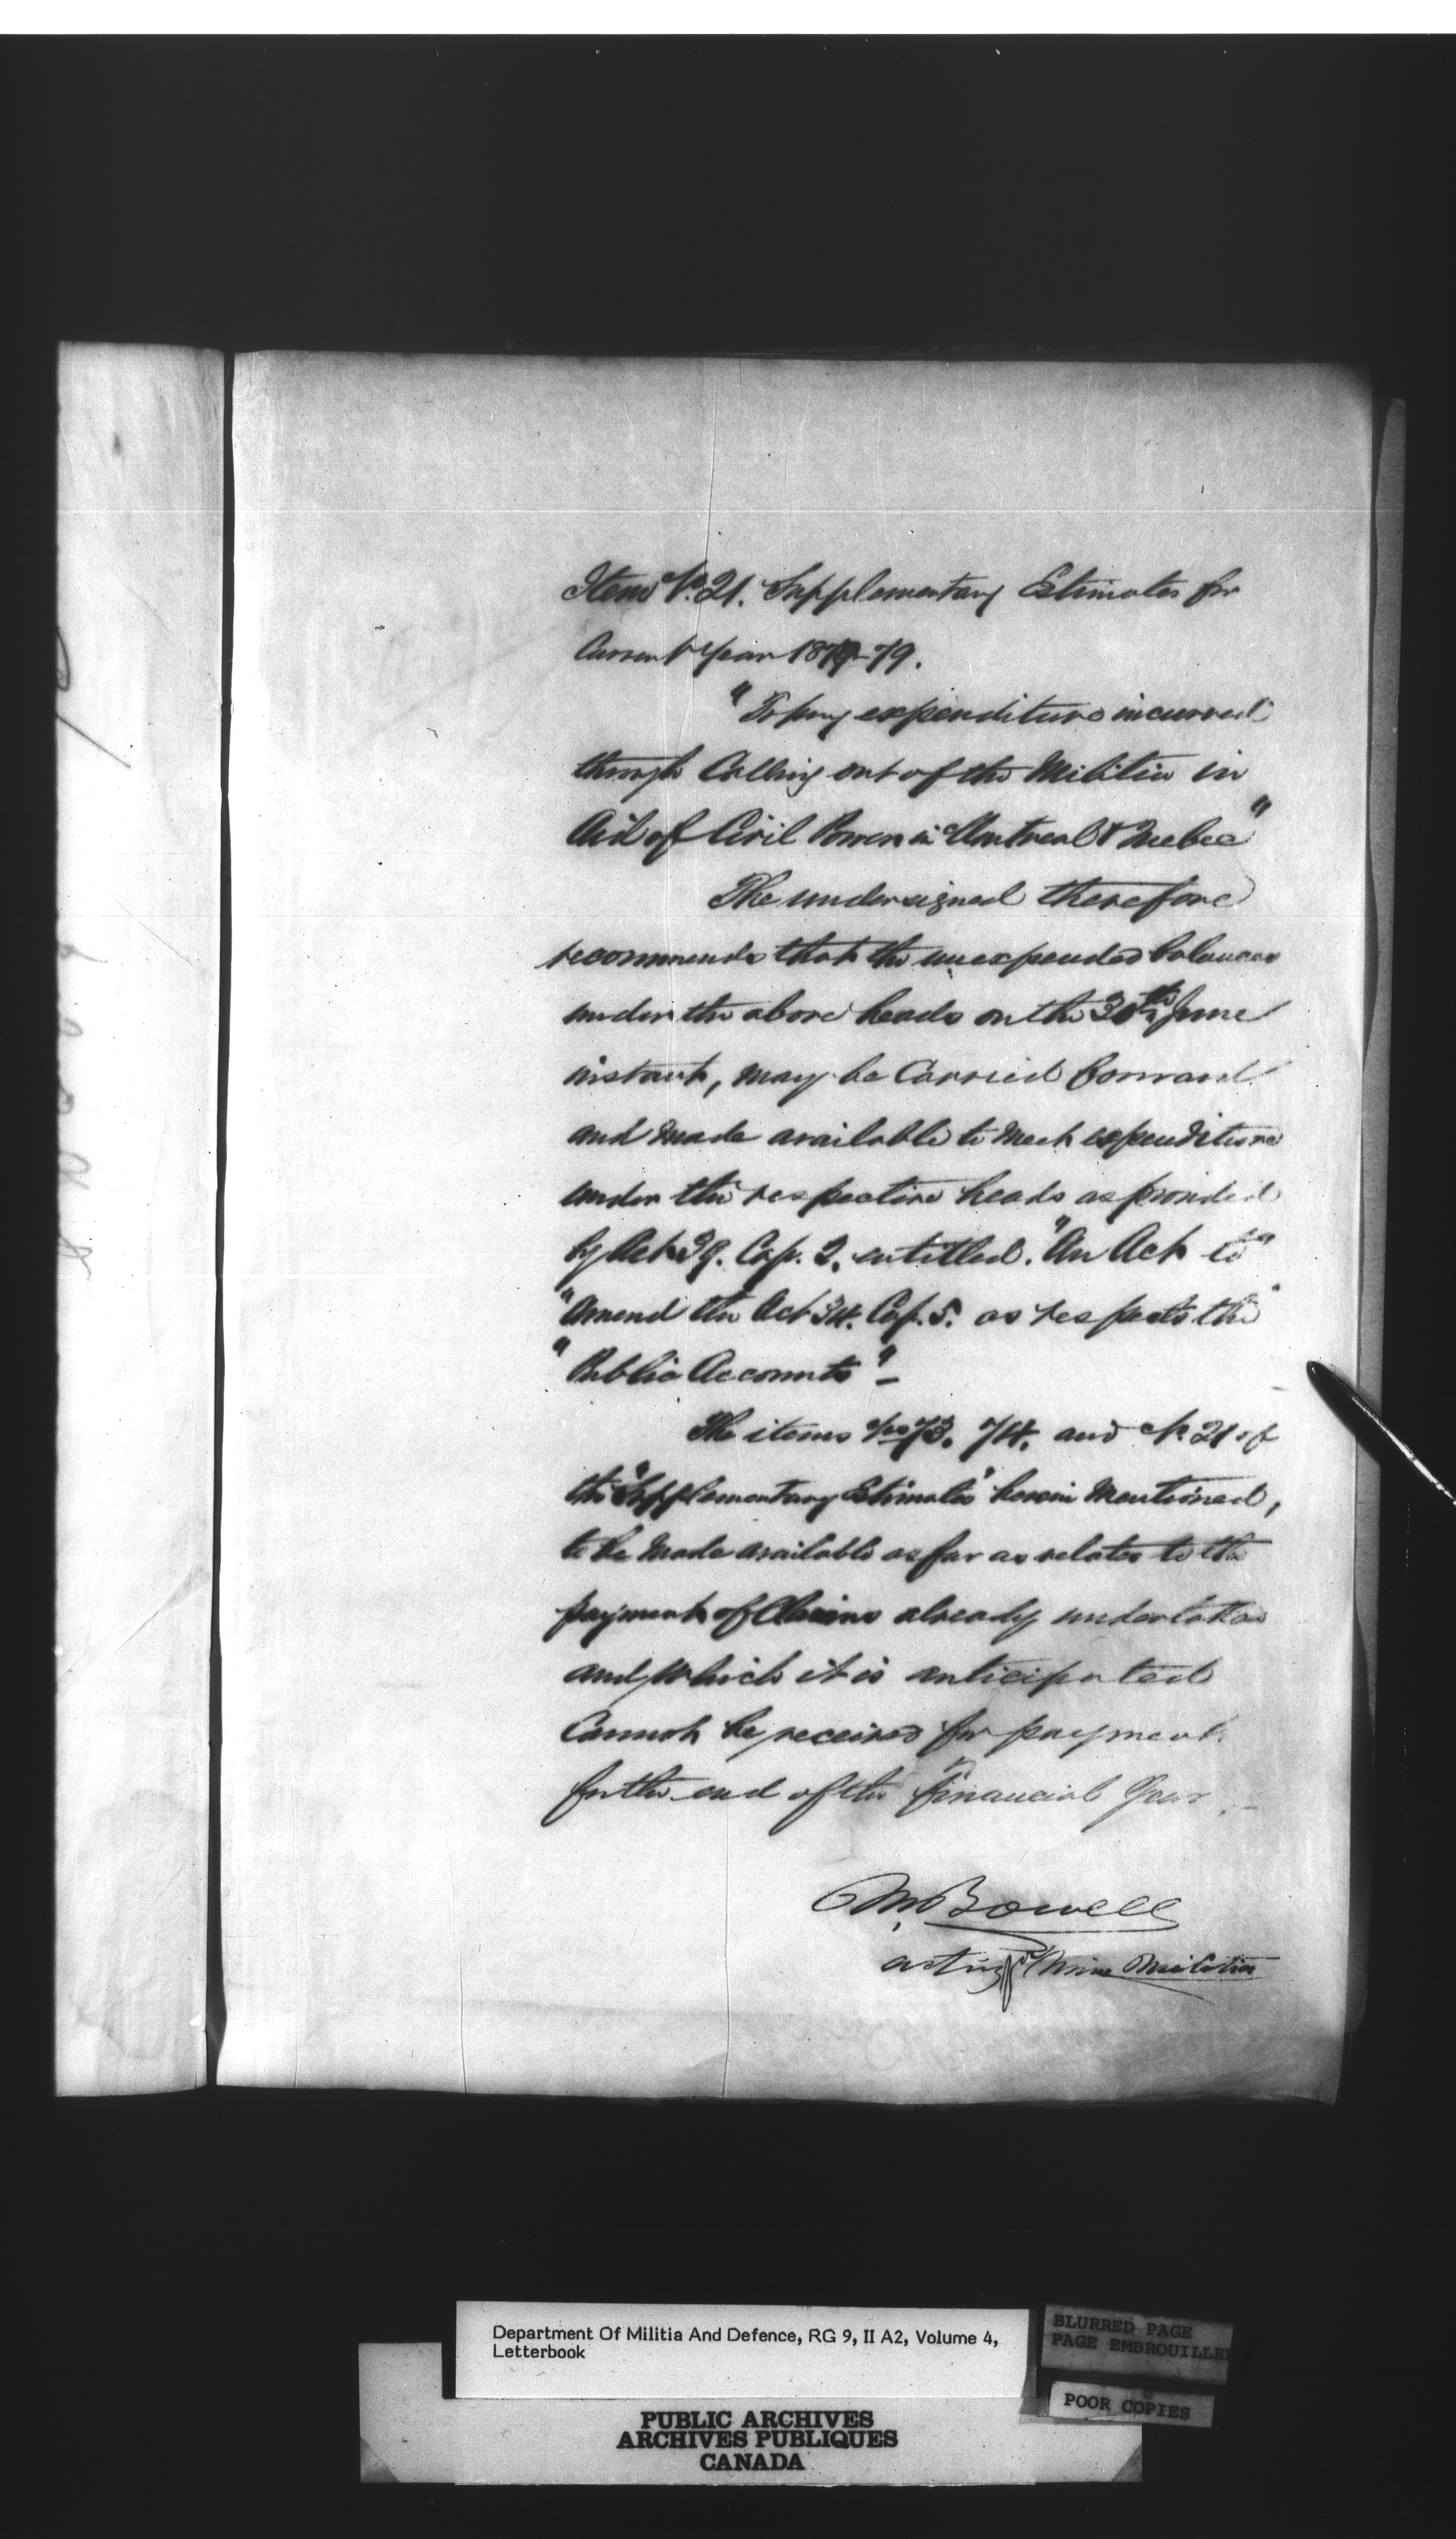 Item No. 21. Supplementary Estimates for
Current Year 1878-79.
"To pay expenditure incurred
through Calling out of the Militia in
Aid of Civil Power in Montreal & Quebec"
The undersigned therefore
recommends that the unexpended balances
under the above heads on the 30th June
instant, may be Carried forward
and made available to meet expenditure
under the respective heads as provided
by Act 39. Cap. 2. entitled. "An Act to"
"Amend the Act 34. Cap. 5. as respects the"
"Public Accounts" -
The items Nos 73. 74. and No. 21 of
the "Supplementary Estimates" herein Mentioned,
to be Made available as far as relates to the
payment of Claims already undertaken
and which it is anticipated
Cannot be received for payment
for the end of the Financial Year
M Bowell
acting Min Militia
Department Of Militia And Defence, RG 9, II A2, Volume 4,
Letterbook
BLURRED PAGE
PAGE EMBROUILLE
POOR COPIES
PUBLIC ARCHIVES
ARCHIVES PUBLIQUES
CANADA